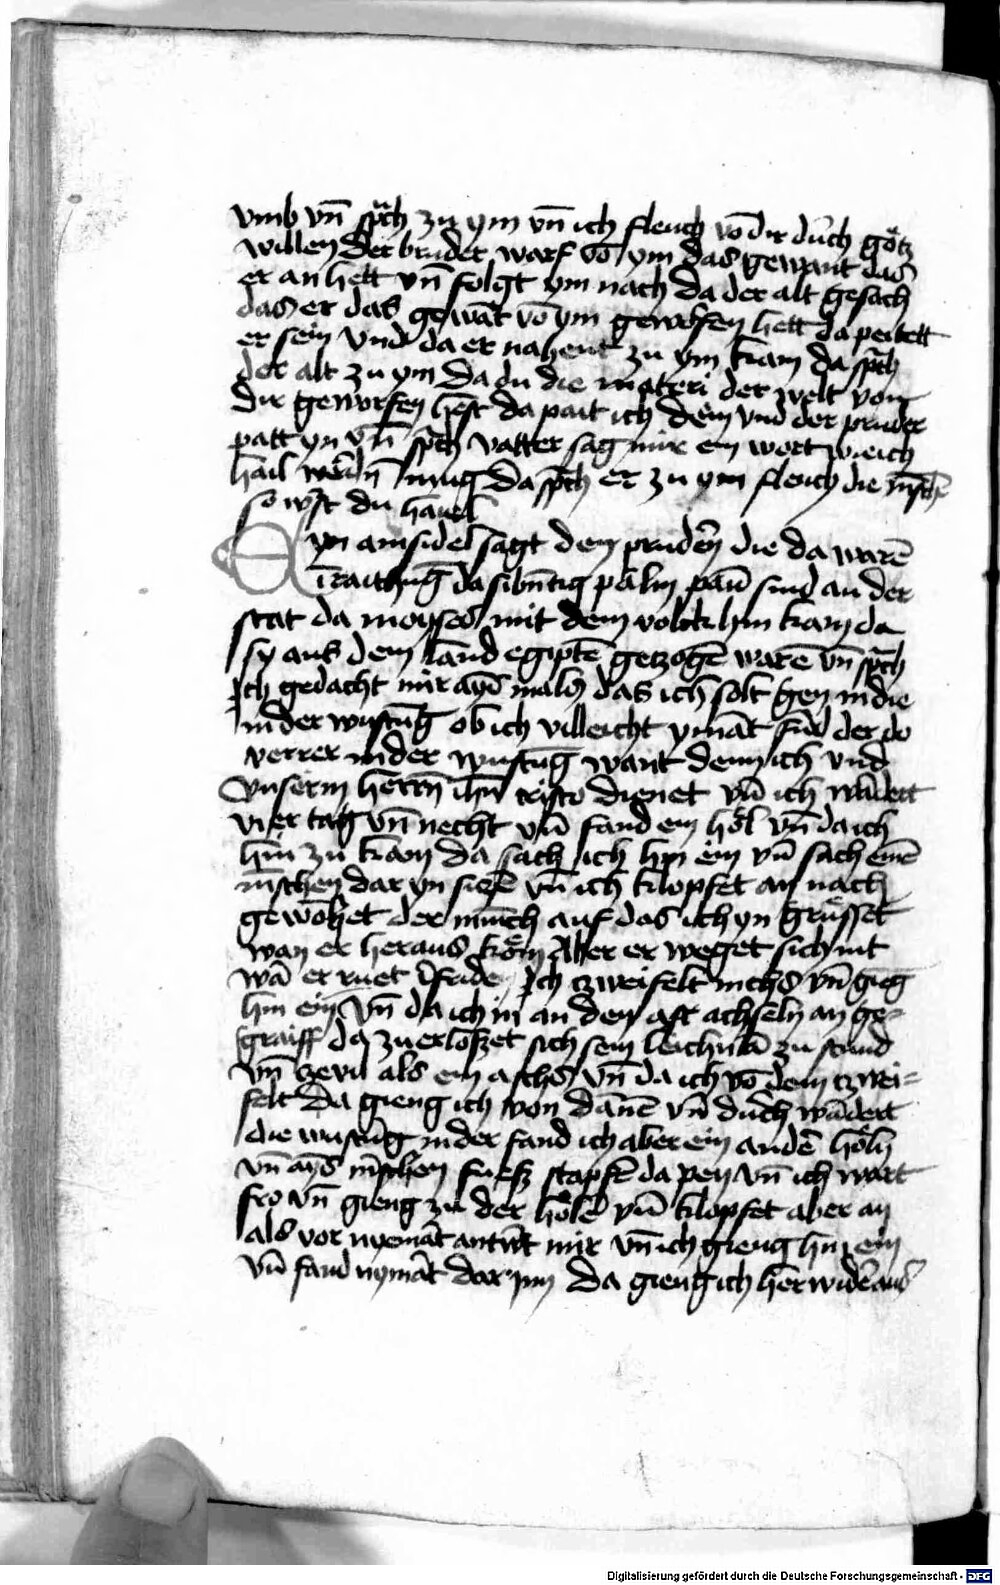 vmb vn̄ sprach zu ym vn̄ ich fleuch vō dir durch gotz
willen der bruder warf vō ym das gewant das
er an hett vn̄ folgt ym nach da der alt gesach
das er das gewāt vō ym geworfen hett da peitett
er sein vnd da er nahent zu ym kam da sprach
der alt zu ym da du die materi der welt von
dir geworfen hest da pait ich dein vnd der pruder
patt yn vn̄ sprach vatter sag mir ein wort wie ich
hail werdn̄ mug da sprach er zu ym fleuch die mēschē
so wirst du hailel
Eyn ainsidel sagt den prudern̄ die da warē
ī raithug̅ da sibn̄tzig palm paū sind an der
stat da moyses mit dem volck hin kam da
sy aus dem land egiptē getzogē warē vn̄ sprach
Ich gedacht mir ayns mals das ich solt gen in die
in der wustūg ob ich villeicht ymāt fūd der do
verrer in der wustūg want denn ich vnd
vnserm herrn̄ ihū cristo dienet vn̄ ich wādert
vier tag vn̄ necht vn̄ fand ein hol vn̄ da ich
hin zu kam da sach ich hin ein vn̄ sach einē
mēschen dar yn siczē vn̄ ich klopfet an nach
gewōhet der munch auf das ich yn grusset
wan er heraus kōm Aber er weget sich nit
wā er ruet ī friden Ich tzweifelt nichs vn̄ gieg
hin ein vn̄ da ich in an den aff achseln an ge-
graiff da zu erloszet sich sein leichnā zu stund
vn̄ ward als ein aschs vn̄ da ich vō dem tzwei-
felt da gieng ich von dānē vn̄ durch wādert
die wustūg in der fand ich aber ein andē holn
vn̄ ayns mēschen fuesz stapfē da pey vn̄ ich wart
fro vn̄ gieng zu der hole vn̄ klopfet aber an
als vor nyemāt antwrt mir vn̄ ich gieng hin ein
vn̄ fand nymāt dar ynn da gieng ich herwider aus
Digitalisierung gefördert durch die Deutsche Forschungsgemeinschaft - DFG